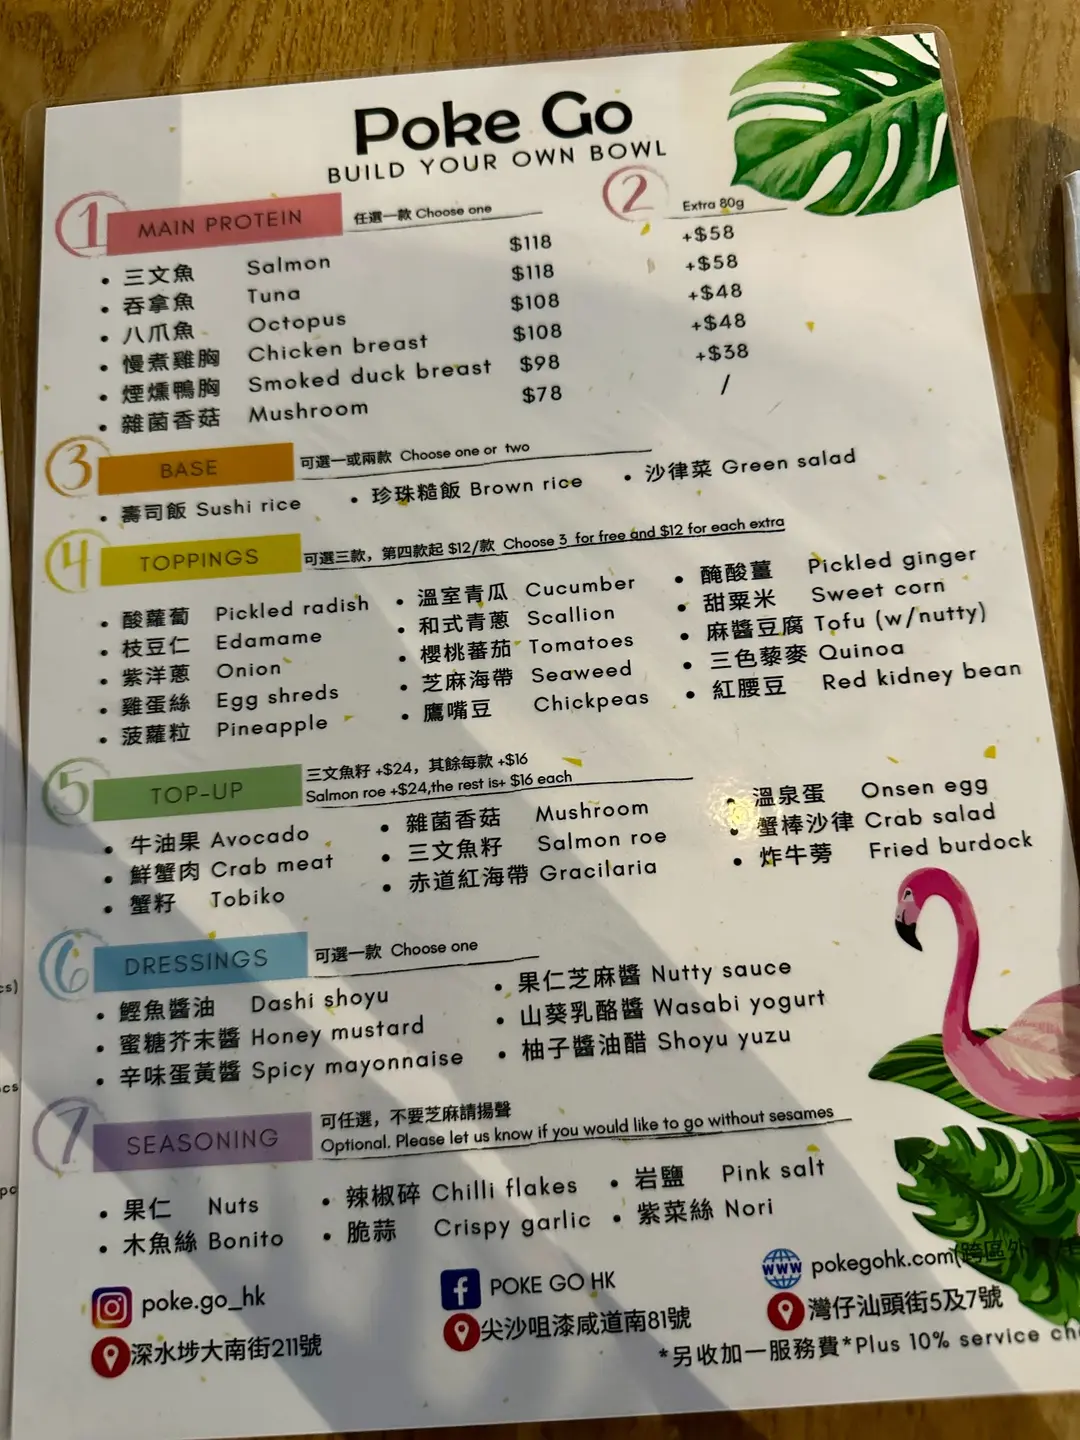 Poke Go
BUILD YOUR OWN BOWL
1 MAIN PROTEIN 任選一款 Choose one 2 Extra 80g
• 三文魚 Salmon $118 +$58
• 吞拿魚 Tuna $118 +$58
• 八爪魚 Octopus $108 +$48
• 慢煮雞胸 Chicken breast $108 +$48
• 煙燻鴨胸 Smoked duck breast $98 +$38
• 雜菌香菇 Mushroom $78 /
3 BASE 可選一或兩款 Choose one or two
• 壽司飯 Sushi rice • 珍珠糙飯 Brown rice • 沙律菜 Green salad
4 TOPPINGS 可選三款，第四款起 $12/款 Choose 3 for free and $12 for each extra
• 酸蘿蔔 Pickled radish • 溫室青瓜 Cucumber • 醃酸薑 Pickled ginger
• 枝豆仁 Edamame • 和式青蔥 Scallion • 甜粟米 Sweet corn
• 紫洋蔥 Onion • 櫻桃蕃茄 Tomatoes • 麻醬豆腐 Tofu (w/nutty)
• 雞蛋絲 Egg shreds • 芝麻海帶 Seaweed • 三色藜麥 Quinoa
• 菠蘿粒 Pineapple • 鷹嘴豆 Chickpeas • 紅腰豆 Red kidney bean
5 TOP-UP 三文魚籽 +$24，其餘每款 +$16
Salmon roe +$24,the rest is+ $16 each
• 牛油果 Avocado • 雜菌香菇 Mushroom • 溫泉蛋 Onsen egg
• 鮮蟹肉 Crab meat • 三文魚籽 Salmon roe • 蟹棒沙律 Crab salad
• 蟹籽 Tobiko • 赤道紅海帶 Gracilaria • 炸牛蒡 Fried burdock
6 DRESSINGS 可選一款 Choose one
• 鰹魚醬油 Dashi shoyu • 果仁芝麻醬 Nutty sauce
• 蜜糖芥末醬 Honey mustard • 山葵乳酪醬 Wasabi yogurt
• 辛味蛋黃醬 Spicy mayonnaise • 柚子醬油醋 Shoyu yuzu
7 SEASONING 可任選，不要芝麻請揚聲
Optional. Please let us know if you would like to go without sesames
• 果仁 Nuts • 辣椒碎 Chilli flakes • 岩鹽 Pink salt
• 木魚絲 Bonito • 脆蒜 Crispy garlic • 紫菜絲 Nori
poke.go_hk POKE GO HK www pokegohk.com(跨區外
深水埗大南街211號 尖沙咀漆咸道南81號 灣仔汕頭街5及7號
*另收加一服務費*Plus 10% service
cs)
pcs
pc